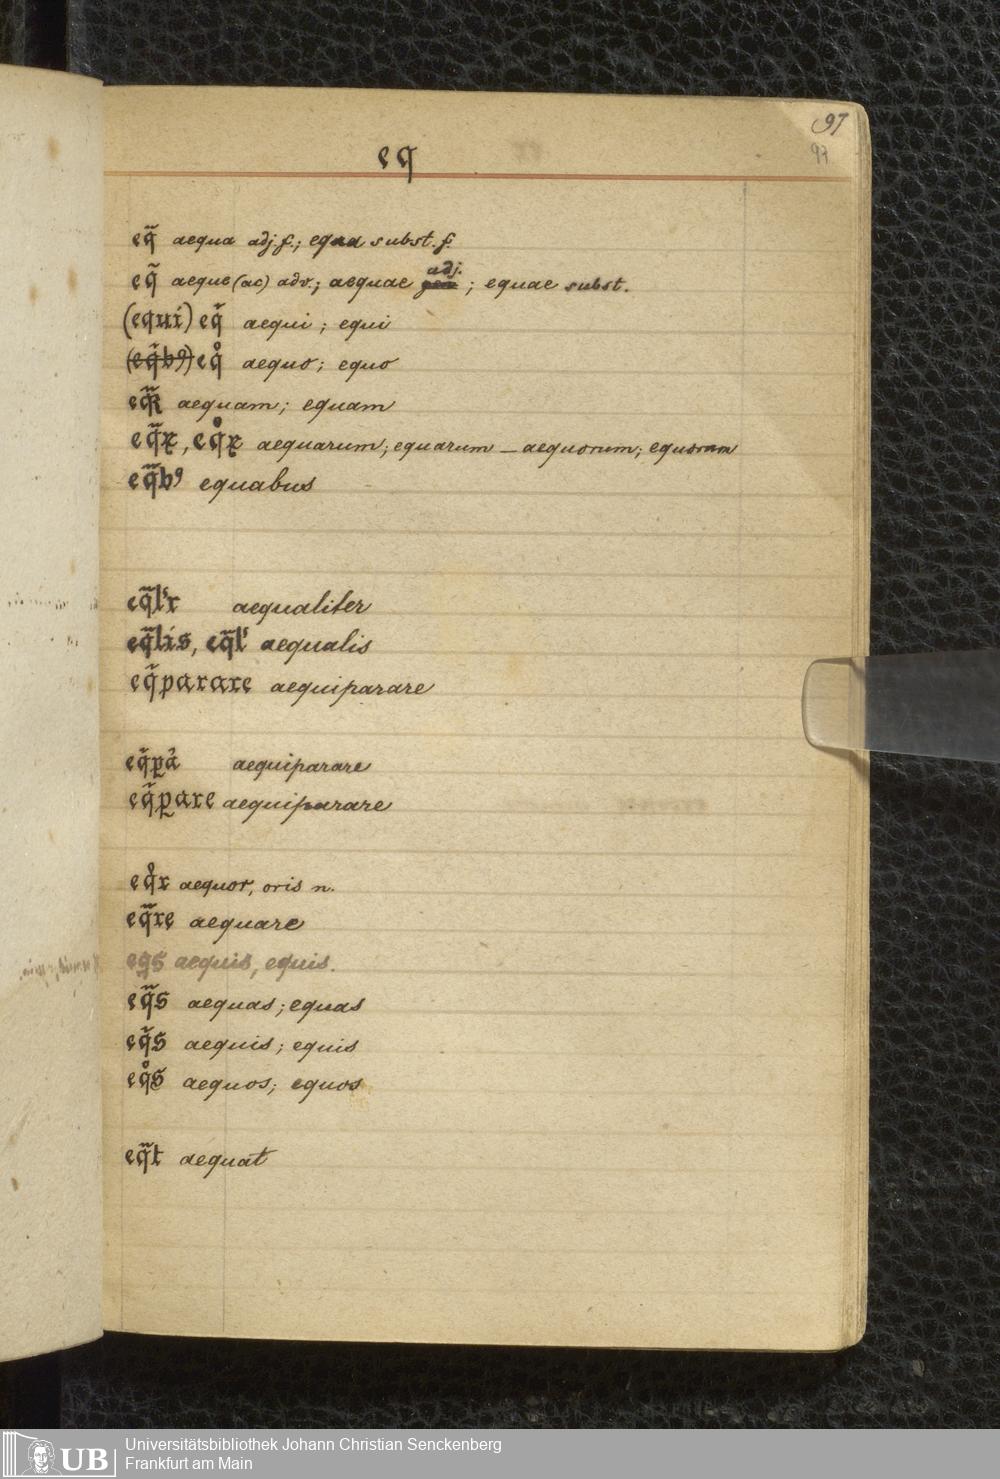 97
97
eq
eq̃ aequa adj. f.; equa subst. f.
eq̃ aeque (ac) adv.; aequae adj.; equae subst.
(equi) eq̆ aequi; equi
(eq̆bꝰ) eq̊ aequo; equo
aequam; equam
eq̃ꝝ, eq̊ꝝ aequarum; equarum – aequorum; equorum
eq̃bꝰ equabus
aequaliter
eq̃lis, eq̃l aequalis
eq̆parare aequiparare
aequiparare
eq̆ꝑare aequiparare
eq̊r aequor, oris n.
eq̃re aequare
eqs aequis, equis.
eq̃s aequas; equas
eq̆s aequis; equis
eq̊s aequos; equos
eq̃t aequat
UB
Universitätsbibliothek Johann Christian Senckenberg
Frankfurt am Main